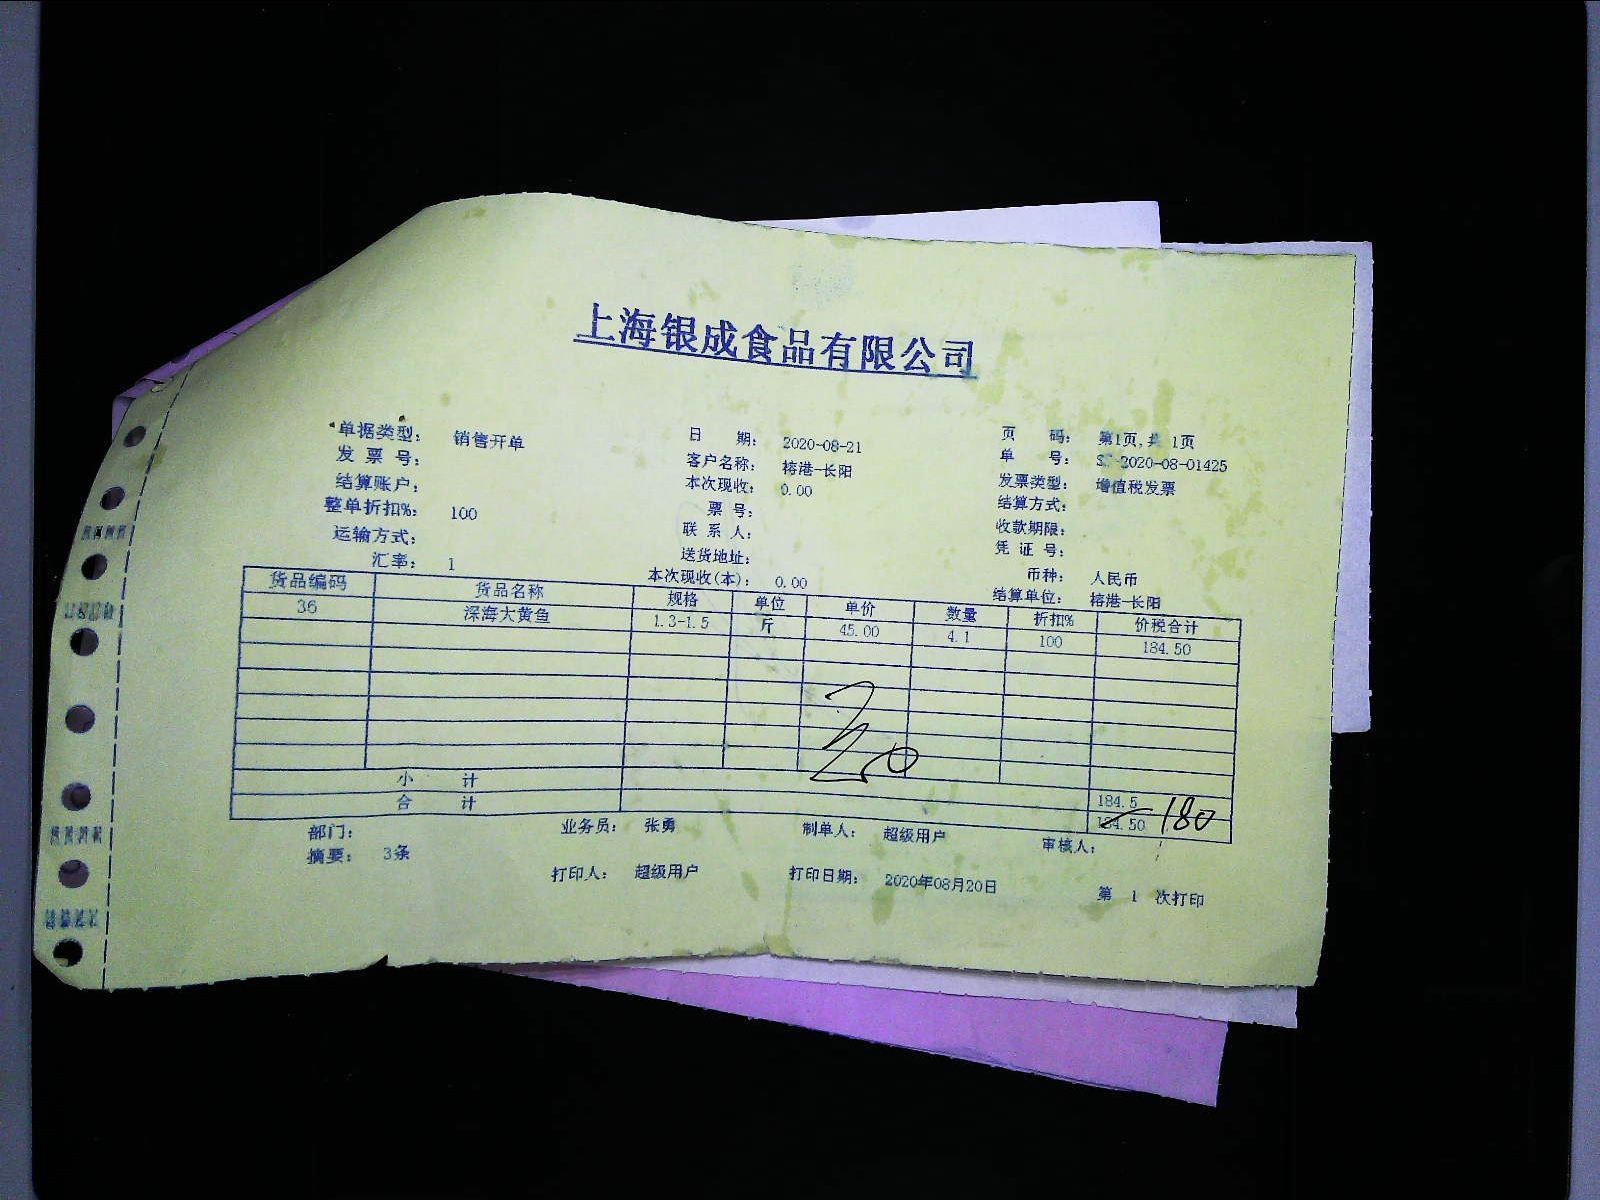 上海银成食品有限公司
单据类型： 销售开单 日 期： 2020-08-21 页 码： 第1页, 共 1页
发 票 号： 客户名称： 榕港-长阳 单 号： 2020-08-01425
结算账户： 本次现收： 0.00 发票类型： 增值税发票
整单折扣%： 100 票 号： 结算方式：
运输方式： 联 系 人： 收款期限：
汇率： 1 送货地址： 凭 证 号：
本次现收(本)： 0.00 币种： 人民币
结算单位： 榕港-长阳
货品编码 货品名称 规格 单位 单价 数量 折扣% 价税合计
36 深海大黄鱼 1.3-1.5 斤 45.00 4.1 100 184.50
小 计 184.5
合 计 184.50 180
部门： 业务员： 张勇 制单人： 超级用户 审核人：
摘要： 3条 打印人： 超级用户 打印日期： 2020年08月20日 第 1 次打印